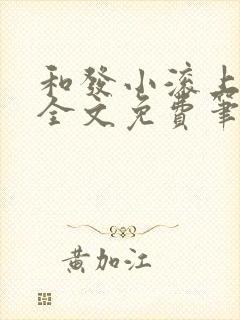 和發小滚上
全文免費筆
黄加江